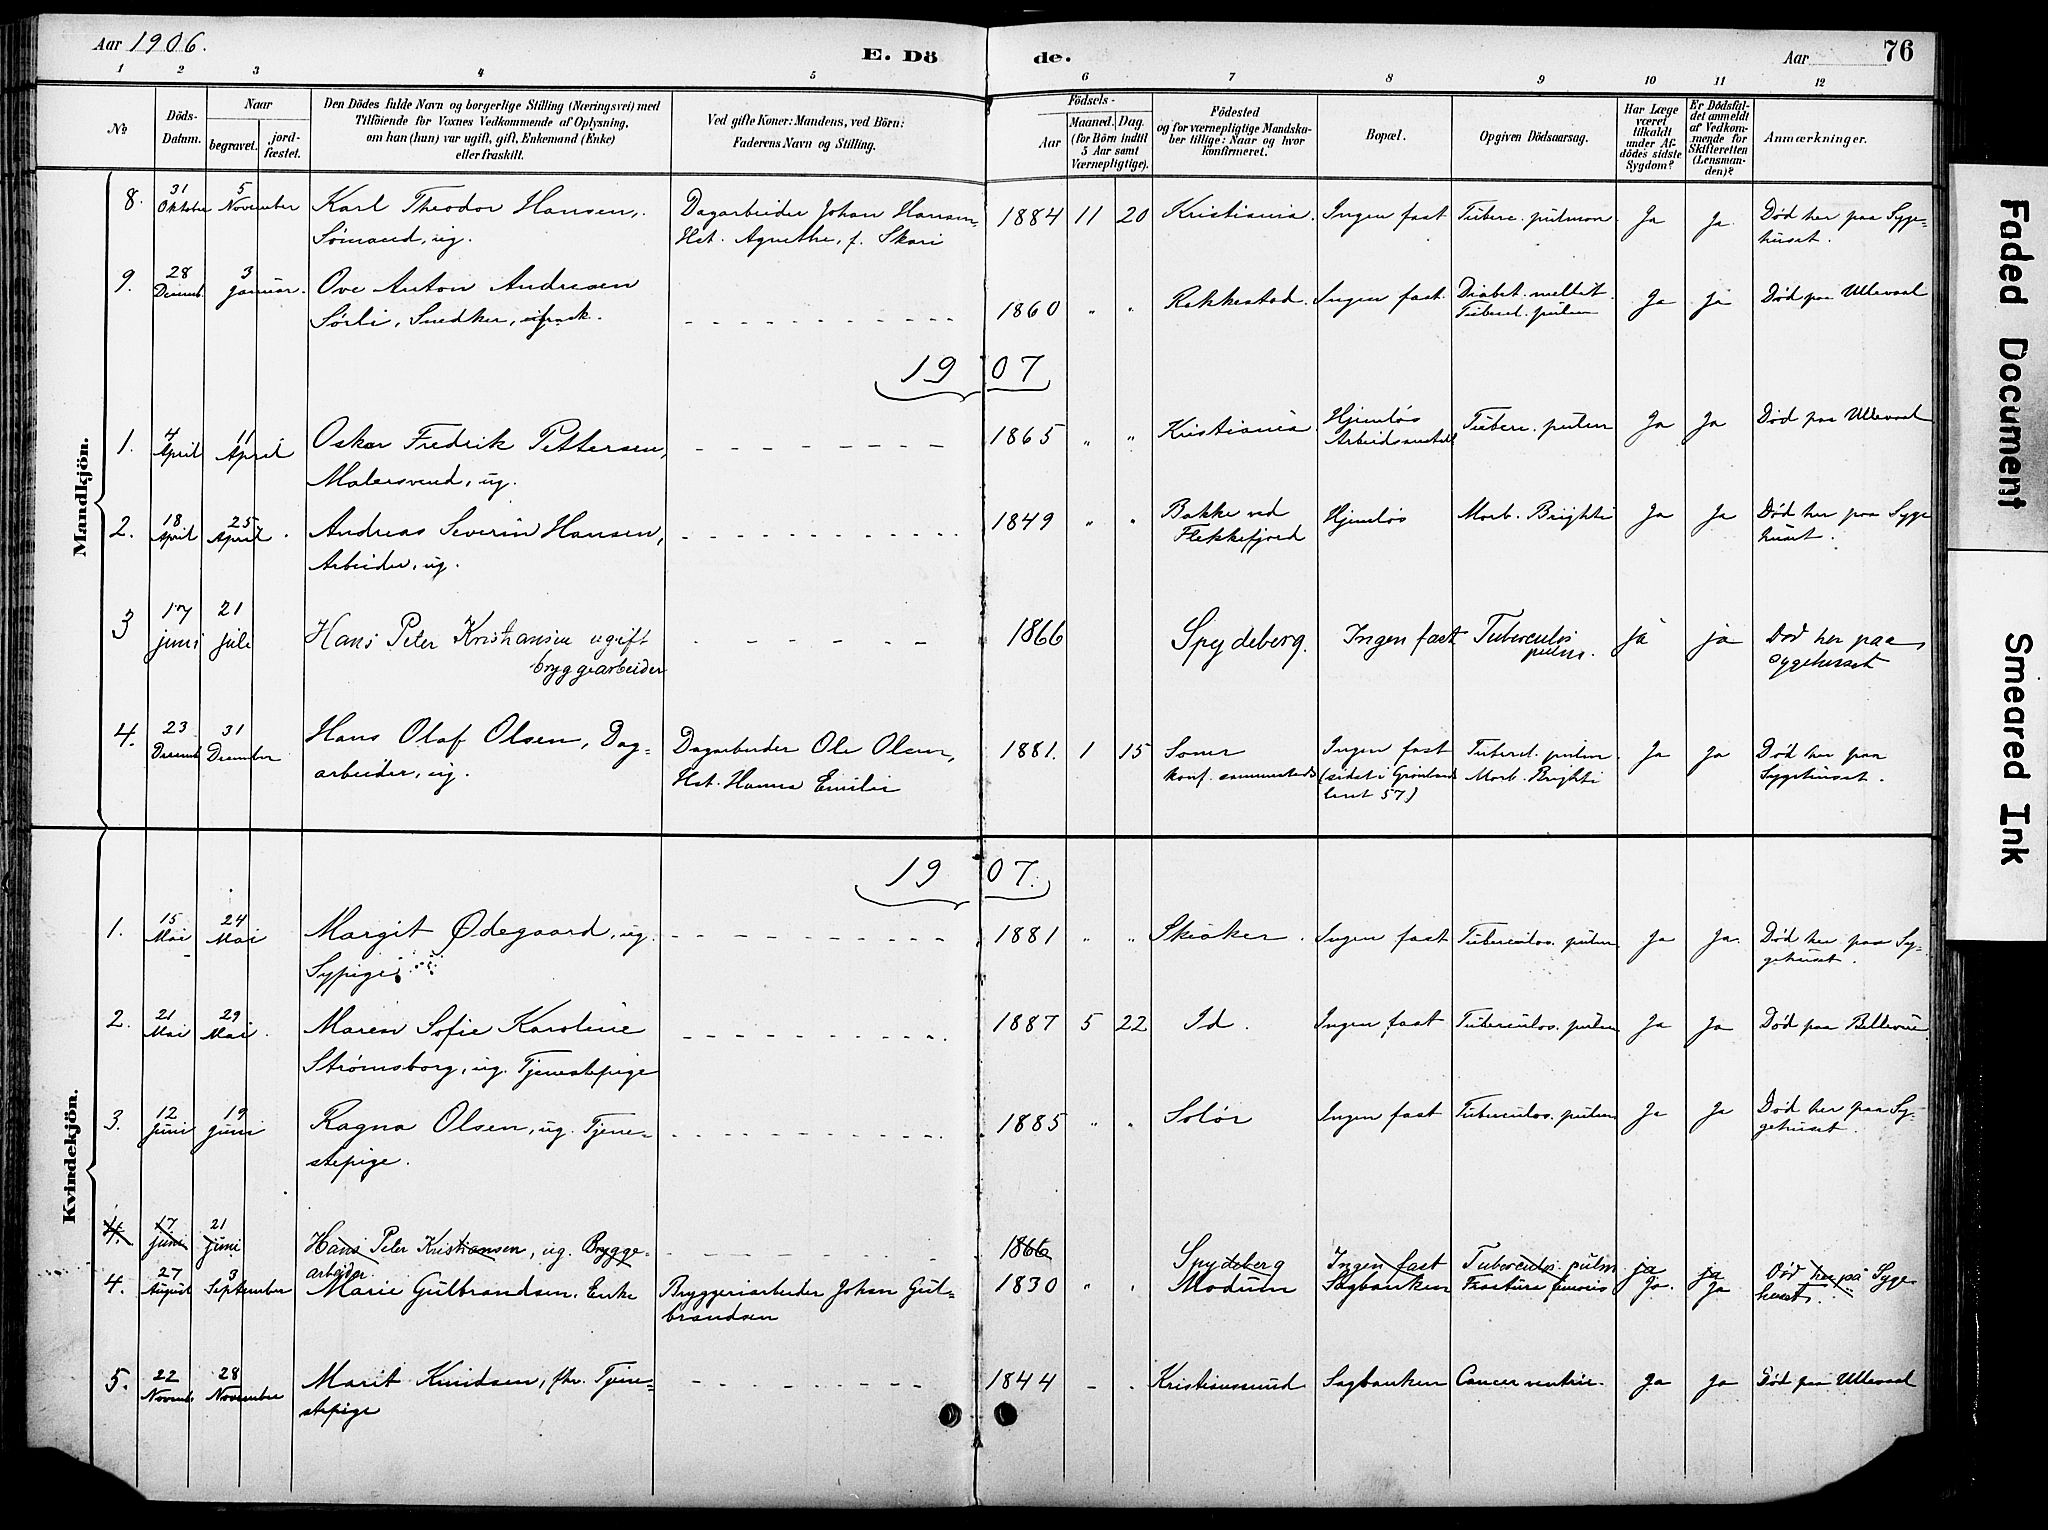 Aar 1906.
E. Dö
de.
Aar
76
1 2 3 4 5 6 7 8 9 10 11 12
No
Döds-
Datum.
Naar
begravet.
jord-
fæstet.
Den Dödes fulde Navn og borgerlige Stilling (Næringsvei) med
Tilföiende for Voxnes Vedkommende af Oplysning,
om han (hun) var ugift, gift, Enkemand (Enke)
eller fraskilt.
Ved gifte Koner: Mandens, ved Börn:
Faderens Navn og Stilling.
Födsels-
Aar
Maaned. Dag.
(for Börn indtil
5 Aar samt
Værnepligtige).
Födested
og for værnepligtige Mandska-
ber tillige: Naar og hvor
konfirmeret.
Bopæl.
Opgiven Dödsaarsag.
Har Læge
været
tilkaldt
under Af-
dödes sidste
Sygdom?
Er Dödsfal-
det anmeldt
af Vedkom-
mende for
Skifteretten
(Lensman-
den)?
Anmærkninger.
Mandkjön.
8. 31 Oktober 5 November Karl Theodor Hansen, Dagarbeider Johan Hansen 1884 11 20 Kristiania. Ingen fast Tuberc. pulmon. Ja Ja. Död her paa Syge-
Sömand, ug. Hst. Agnethe, f. Skari huset.
9. 28 Decemb. 3 Januar. Ove Anton Andresen 1860 " " Rakkestad. Ingen fast. Diabet. mellit. Ja Ja Död paa Ullevaal
Sörli, Snedker, frask. Tubercl. pulm
1907
1. 4 April 11 April Oskar Fredrik Pettersen, 1865 " " Kristiania Hjemlös Tuberc. pulm Ja Ja Död paa Ullevaal
Malersvend, ug. Arbeidsanstalt
2. 18 April 25 April. Andreas Severin Hansen, 1849 " " Bakke ved Hjemlös Morb. Brighti Ja Ja Död her paa Syge
Arbeider, ug. Flekkefjord huset.
3 17 juni 21 juli Hans Peter Kristiansen ugift 1866 Spydeberg. Ingen fast Tuberculos ja ja Död her paa
bryggearbeider pulm. Sygehuset
4. 23 Decemb 31 December Hans Olaf Olsen, Dag- Dagarbeider Ole Olsen, 1881. 1 15 Soner Ingen fast Tubercl. pulm Ja Ja Död her paa
arbeider, ug. Hst. Hanna Emilie konf. sammesteds (sidst i Grönlands Morb. Brighti Sygehuset.
leret 57)
Kvindekjön.
1907.
1. 15 Mai 24 Mai Margit Ødegaard, ug. 1881 " " Skiaker. Ingen fast Tuberculos. pulm Ja Ja. Död her paa Sy-
Sypige gehuset.
2. 21 Mai 29 Mai. Maren Sofie Karoline 1887 5 22 Id. Ingen fast Tuberculos. pulm Ja Ja Död paa Bellevue
Strømsborg, ug. Tjenestepige
3. 12 Juni 19 Juni Ragna Olsen, ug. Tjene- 1885 " " Solör Ingen fast Tuberculos. pulm Ja Ja Död her paa Sy-
stepige. gehuset.
4. 17 juni 21 juni Hans Peter Kristiansen, ug. Brygge- 1866 Spydeberg Ingen fast Tuberculos pulm ja ja Död her på Syge-
arbejder. huset.
4. 27 August 3 September Marie Gulbrandsen. Enke Bryggeriarbeider Johan Gul- 1830 " " Modum Sagbanken Fractura femoris Ja. Ja
brandsen
5. 22 Novemb. 28 November Marit Knudsen, fhr. Tjene- 1844 " " Kristianssund Sagbanken Cancer ventric. Ja Ja Död paa Ullevaal
stepige
Faded Document
Smeared Ink